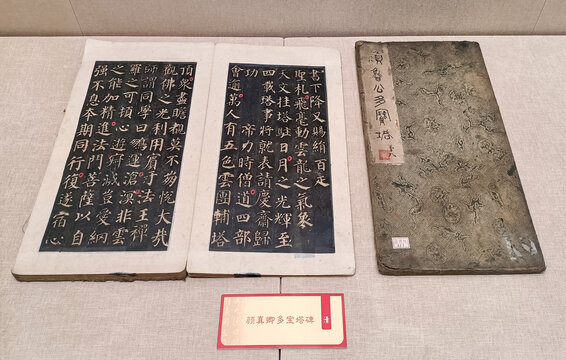 書下降又賜絹百疋
聖札飛毫動雲龍之氣象
天文挂塔駐日月之光輝至
四載塔事將就表請慶齋歸
功 帝力時僧道四部
會逾萬人有五色雲團輔塔
頂衆盡瞻覩莫不崩悅大哉
觀佛之光利用賓于法王禪
師謂同學曰鵬運滄溟非雲
羅之可頓心遊寂滅豈愛網
之能加精進法門菩薩以自
強不息本期同行復遂宿心
顏魯公多寶塔
颜真卿多宝塔碑
清